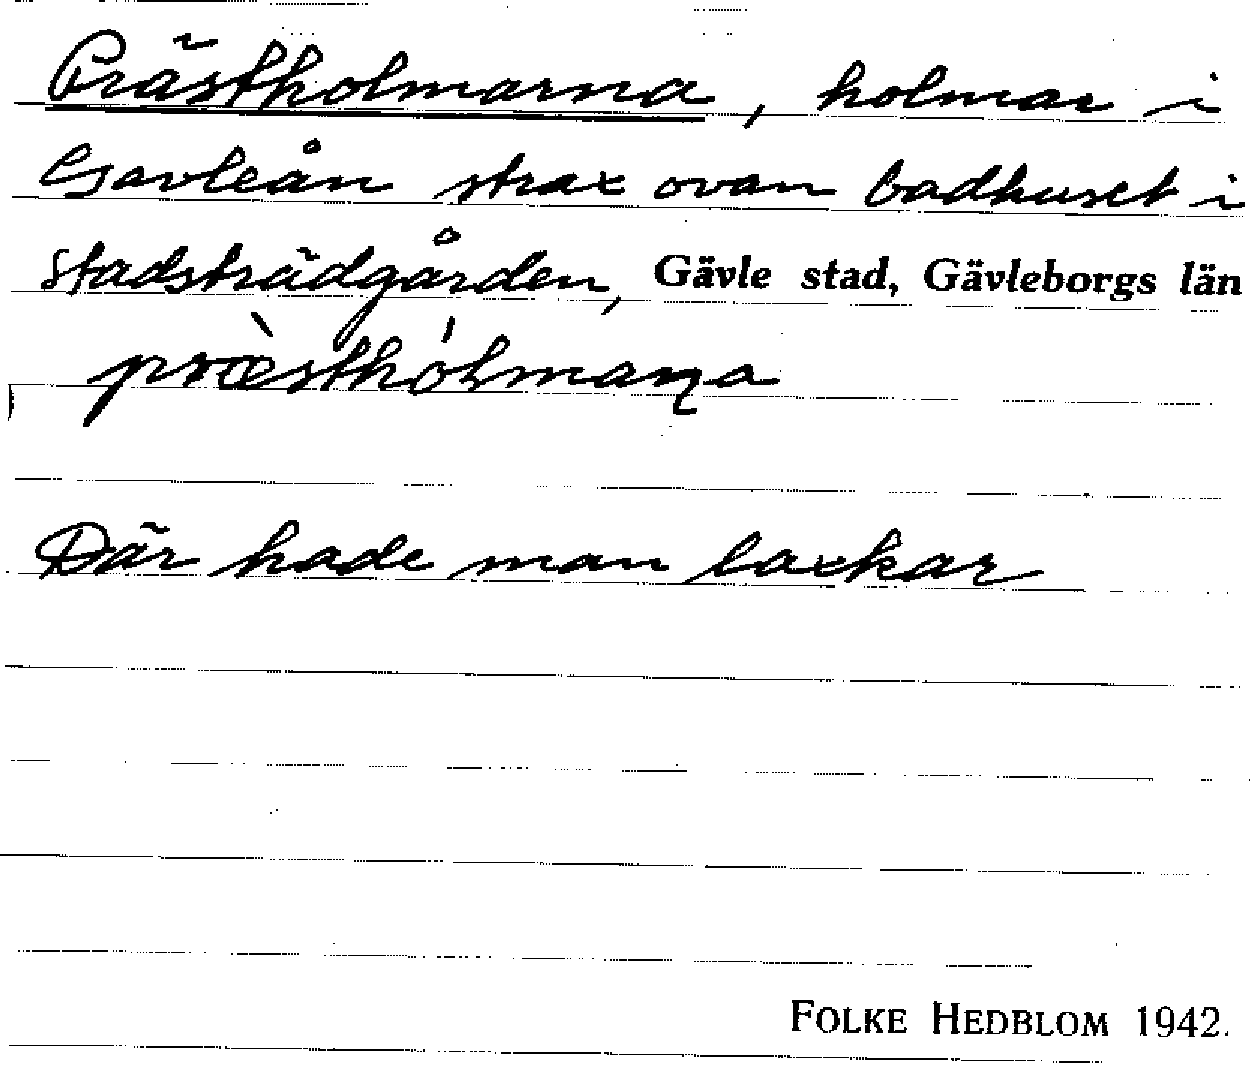 Prästholmarna, holmar i
Gavleån strax ovan badhuset i
stadsträdgården, Gävle stad, Gävleborgs län
præ̀sthólmaɳa
Där hade man laxkar
FOLKE HEDBLOM 1942.